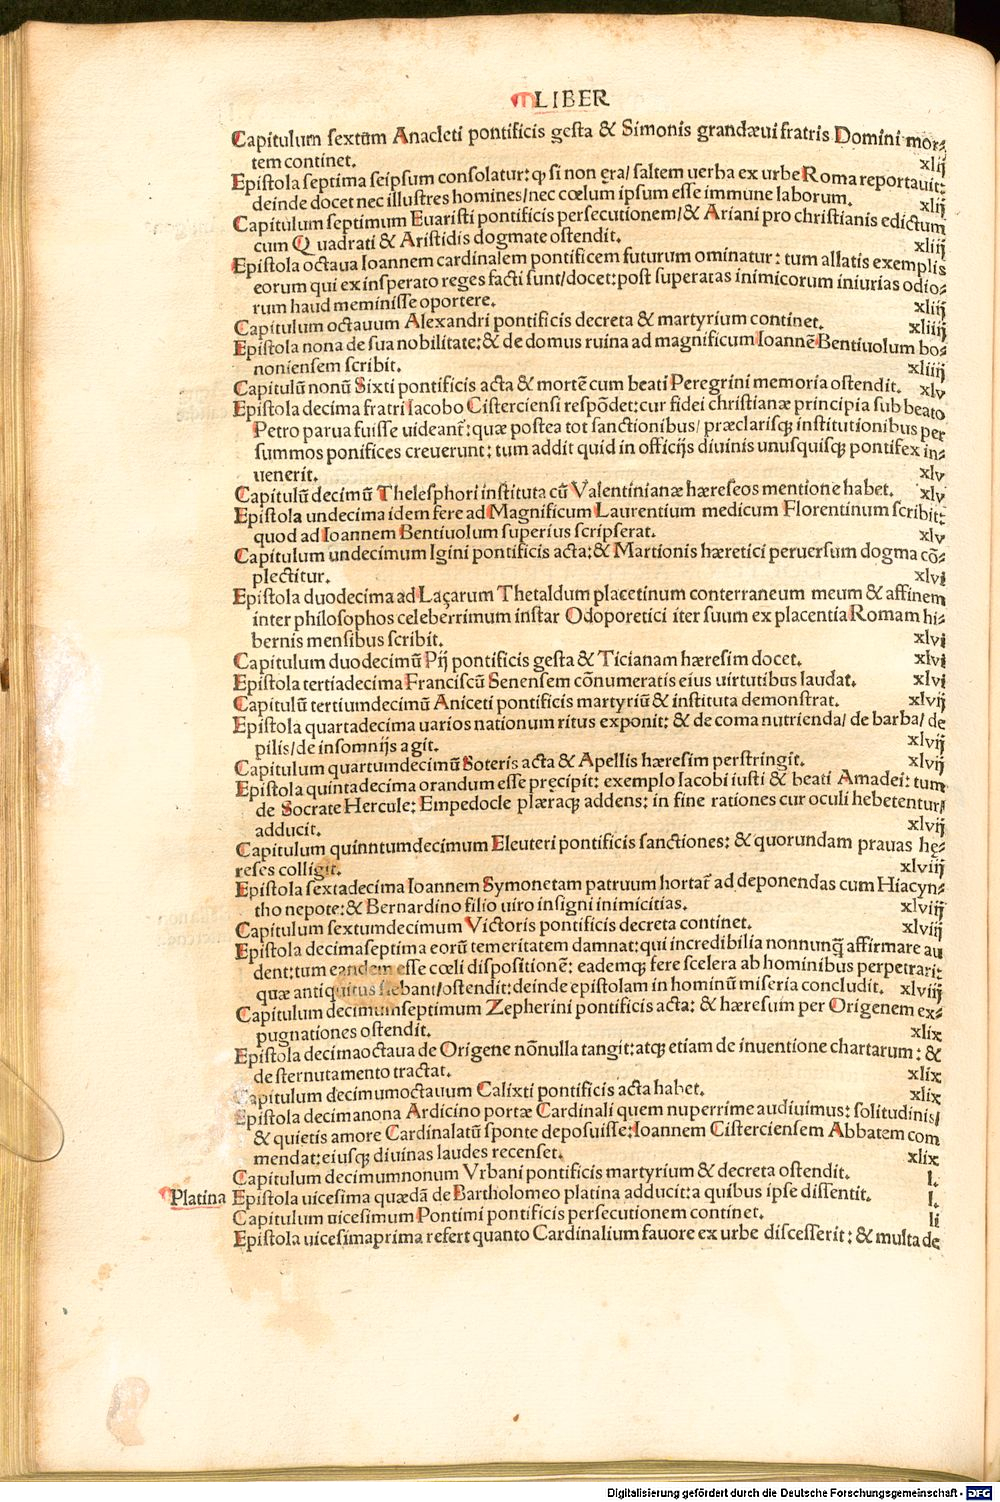 LIBER
Capitulum sextum Anacleti pontificis gesta & Simonis grandæui fratris Domini mor⸗
tem continet. xlij
Epistola septima seipsum consolatur: ꝙ si non ęra/ saltem uerba ex urbe Roma reportauit:
deinde docet nec illustres homines/ nec cœlum ipsum esse immune laborum. xlij
Capitulum septimum Euaristi pontificis persecutionem/ & Ariani pro christianis edictum
cum Quadrati & Aristidis dogmate ostendit. xliij
Epistola octaua Ioannem cardinalem pontificem futurum ominatur: tum allatis exemplis
eorum qui ex insperato reges facti sunt/ docet: post superatas inimicorum iniurias odio⸗
rum haud meminisse oportere. xliij
Capitulum octauum Alexandri pontificis decreta & martyrium continet. xliiij
Epistola nona de sua nobilitate: & de domus ruina ad magnificum Ioannē Bentiuolum bo⸗
noniensem scribit. xliiij
Capitulū nonū Sixti pontificis acta & mortē cum beati Peregrini memoria ostendit. xlv
Epistola decima fratri Iacobo Cisterciensi respōdet: cur fidei christianæ principia sub beato
Petro parua fuisse uideant᷑: quæ postea tot sanctionibus/ præclarisqꝫ institutionibus per
summos ponifices creuerunt: tum addit quid in officijs diuinis unusquisqꝫ pontifex in⸗
uenerit. xlv
Capitulū decimū Thelesphori instituta cū Valentinianæ hæreseos mentione habet. xlv
Epistola undecima idem fere ad Magnificum Laurentium medicum Florentinum scribit:
quod ad Ioannem Bentiuolum superius scripserat. xlv
Capitulum undecimum Igini pontificis acta: & Martionis hæretici peruersum dogma cō⸗
plectitur. xlvi
Epistola duodecima ad Laçarum Thetaldum placetinum conterraneum meum & affinem
inter philosophos celeberrimum instar Odoporetici iter suum ex placentia Romam hi⸗
bernis mensibus scribit. xlvi
Capitulum duodecimū Pij pontificis gesta & Ticianam hæresim docet. xlvi
Epistola tertiadecima Franciscū Senensem cōnumeratis eius uirtutibus laudat. xlvi
Capitulū tertiumdecimū Aniceti pontificis martyriū & instituta demonstrat. xlvij
Epistola quartadecima uarios nationum ritus exponit: & de coma nutrienda/ de barba/ de
pilis/ de insomnijs agit. xlvij
Capitulum quartumdecimū Soteris acta & Apellis hæresim perstringit. xlvij
Epistola quintadecima orandum esse pręcipit: exemplo Iacobi iusti & beati Amadei: tum
de Socrate Hercule: Empedocle plæraqꝫ addens: in fine rationes cur oculi hebetentur/
adducit. xlvij
Capitulum quinntumdecimum Eleuteri pontificis sanctiones: & quorundam prauas hę⸗
reses colligit. xlviij
Epistola sextadecima Ioannem Symonetam patruum hortat᷑ ad deponendas cum Hiacyn⸗
tho nepote: & Bernardino filio uiro insigni inimicitias. xlviij
Capitulum sextumdecimum Victoris pontificis decreta continet. xlviij
Epistola decimaseptima eorū temeritatem damnat: qui incredibilia nonnunꝗ̃ affirmare au
dent: tum eandem esse cœli dispositionē: eademqꝫ fere scelera ab hominibus perpetrari:
quæ antiquitus fiebant/ ostendit: deinde epistolam in hominū miseria concludit. xlviij
Capitulum decimumseptimum Zepherini pontificis acta: & hæresum per Origenem ex⸗
pugnationes ostendit. xlix
Epistola decimaoctaua de Origene nōnulla tangit: atqꝫ etiam de inuentione chartarum: &
de sternutamento tractat. xlix
Capitulum decimumoctauum Calixti pontificis acta habet. xlix
Epistola decimanona Ardicino portæ Cardinali quem nuperrime audiuimus: solitudinis/
& quietis amore Cardinalatū sponte deposuisse: Ioannem Cisterciensem Abbatem com
mendat: eiusqꝫ diuinas laudes recenset. xlix
Capitulum decimumnonum Vrbani pontificis martyrium & decreta ostendit. l.
Platina Epistola uicesima quædā de Bartholomeo platina adducit: a quibus ipse dissentit. l.
Capitulum uicesimum Pontimi pontificis persecutionem continet. li
Epistola uicesimaprima refert quanto Cardinalium fauore ex urbe discesserit: & multa de
Digitalisierung gefördert durch die Deutsche Forschungsgemeinschaft - DFG